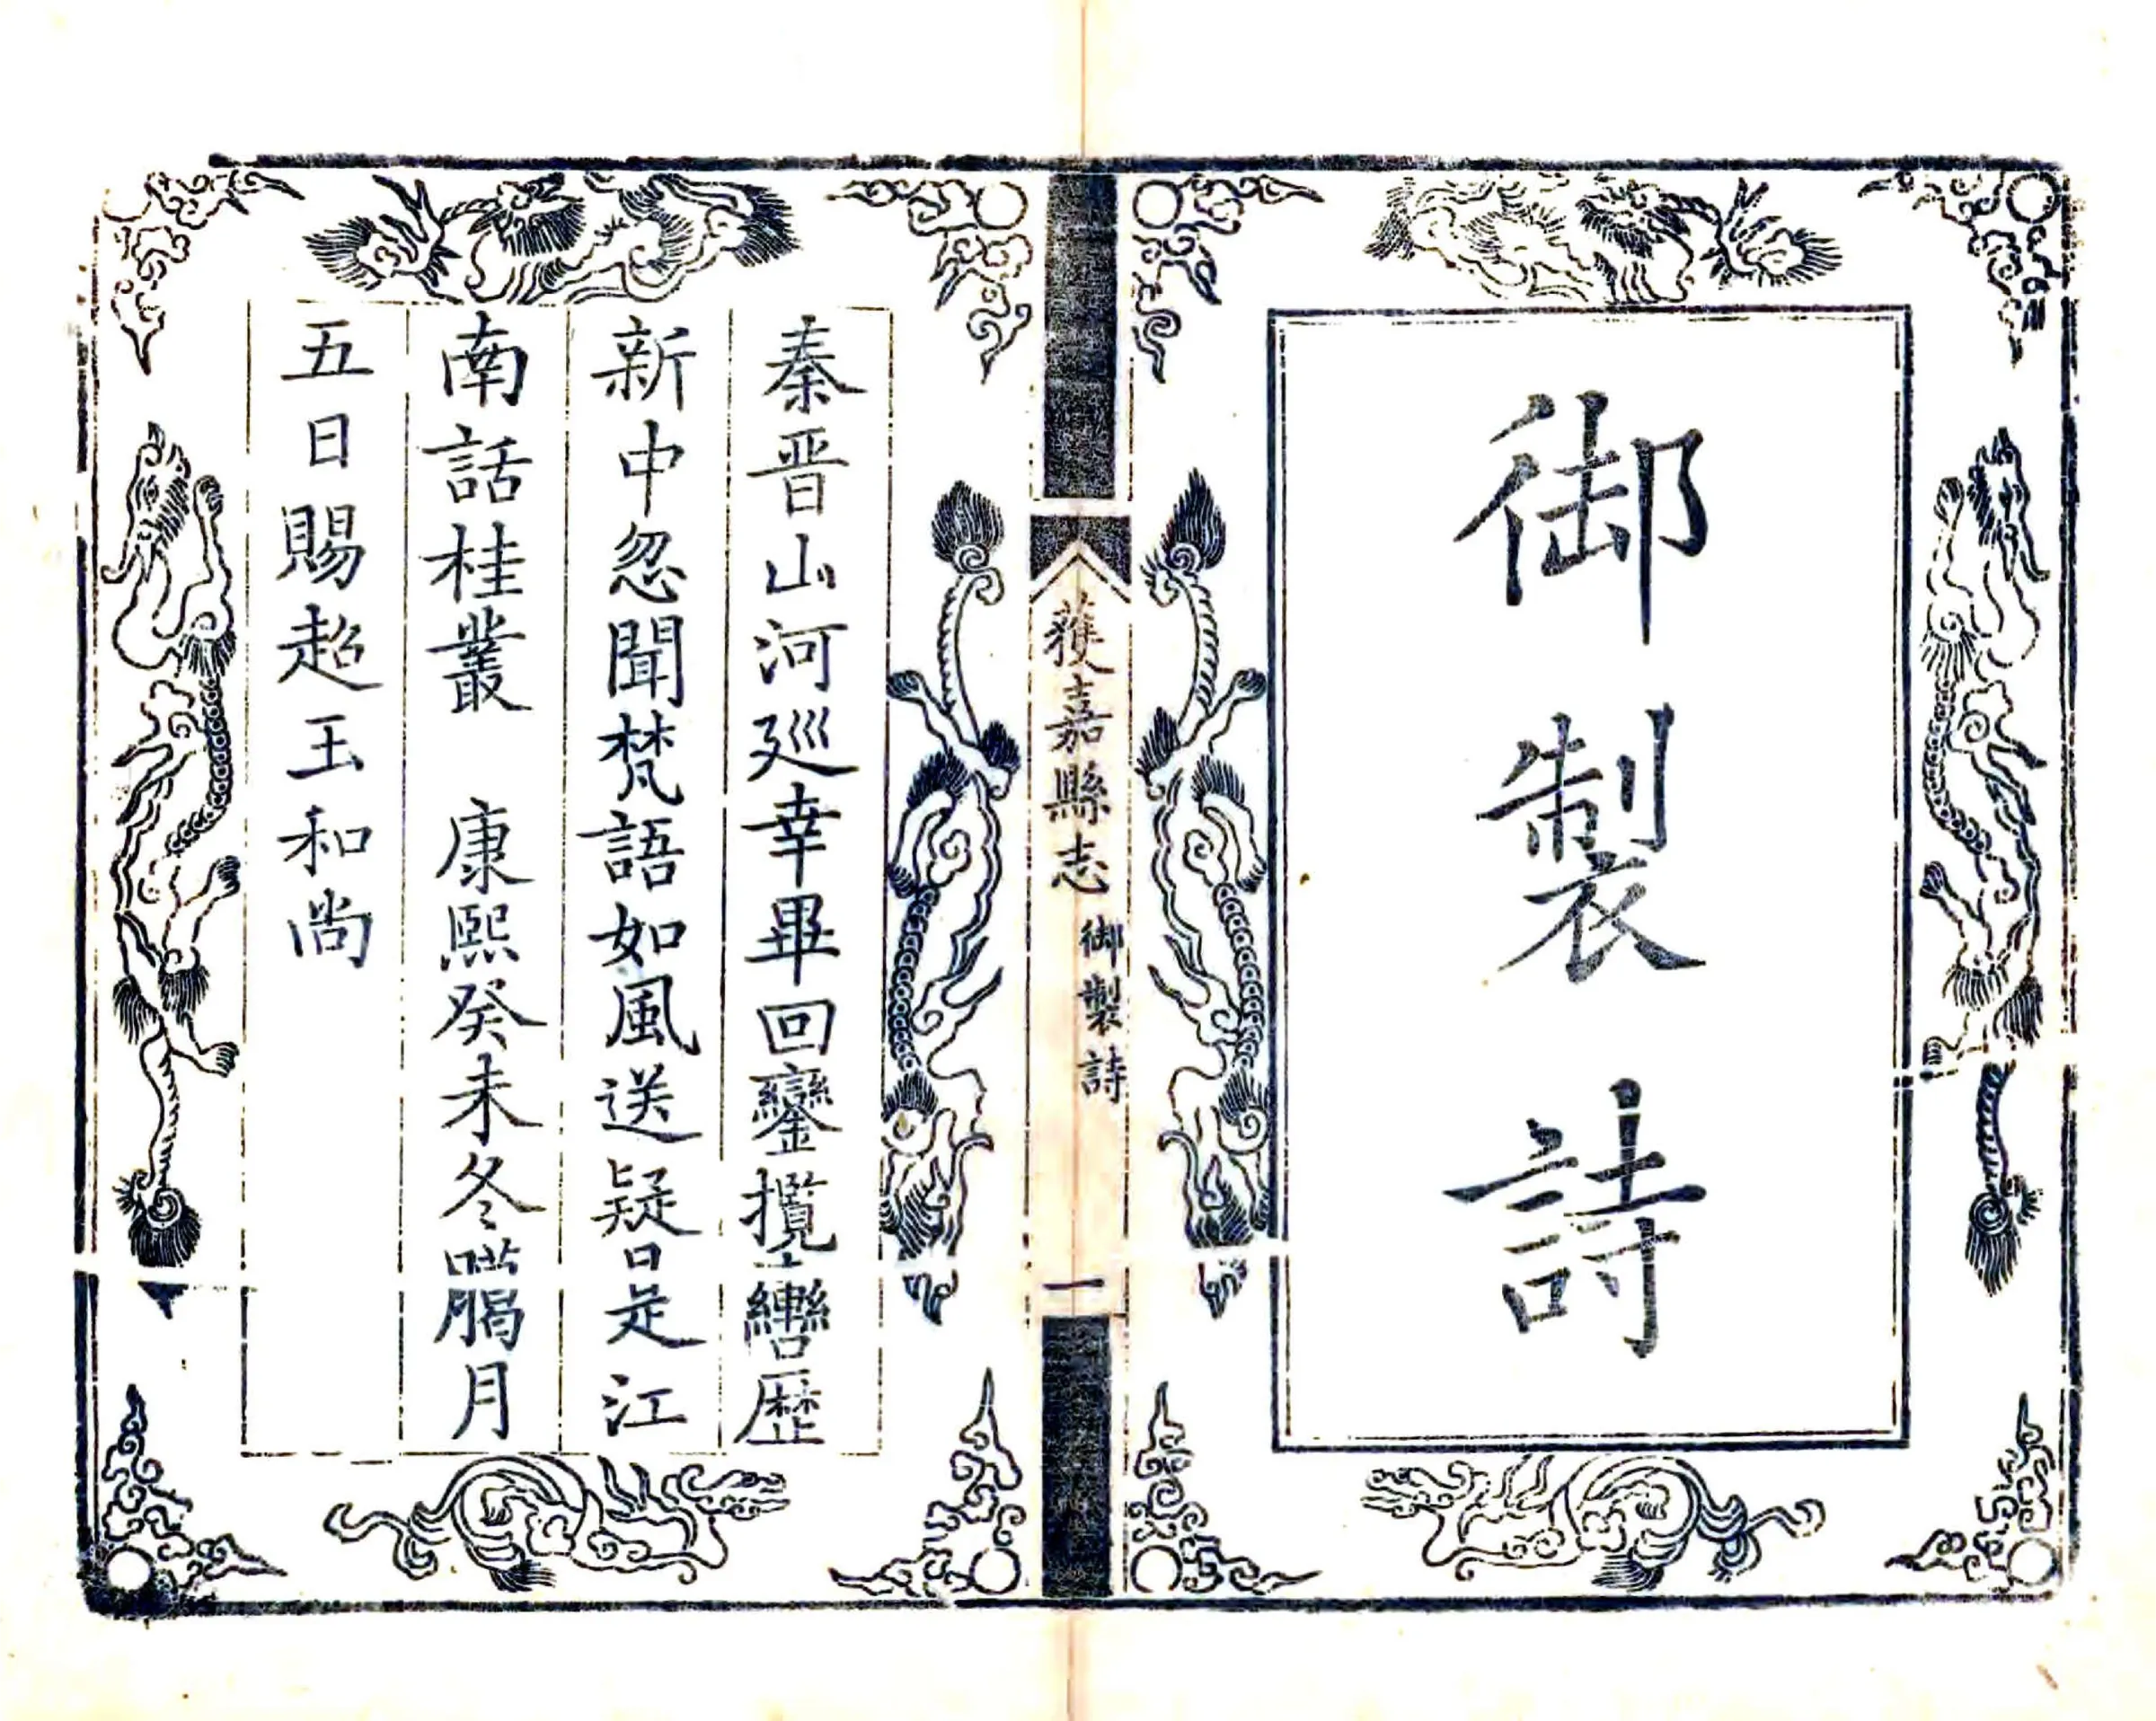 御製詩
獲嘉縣志 御製詩 一
秦晋山河廵幸畢回鑾攬轡歷
新中忽聞梵語如風送疑是江
南話桂叢 康熙癸未冬臈月
五日賜超玉和尚